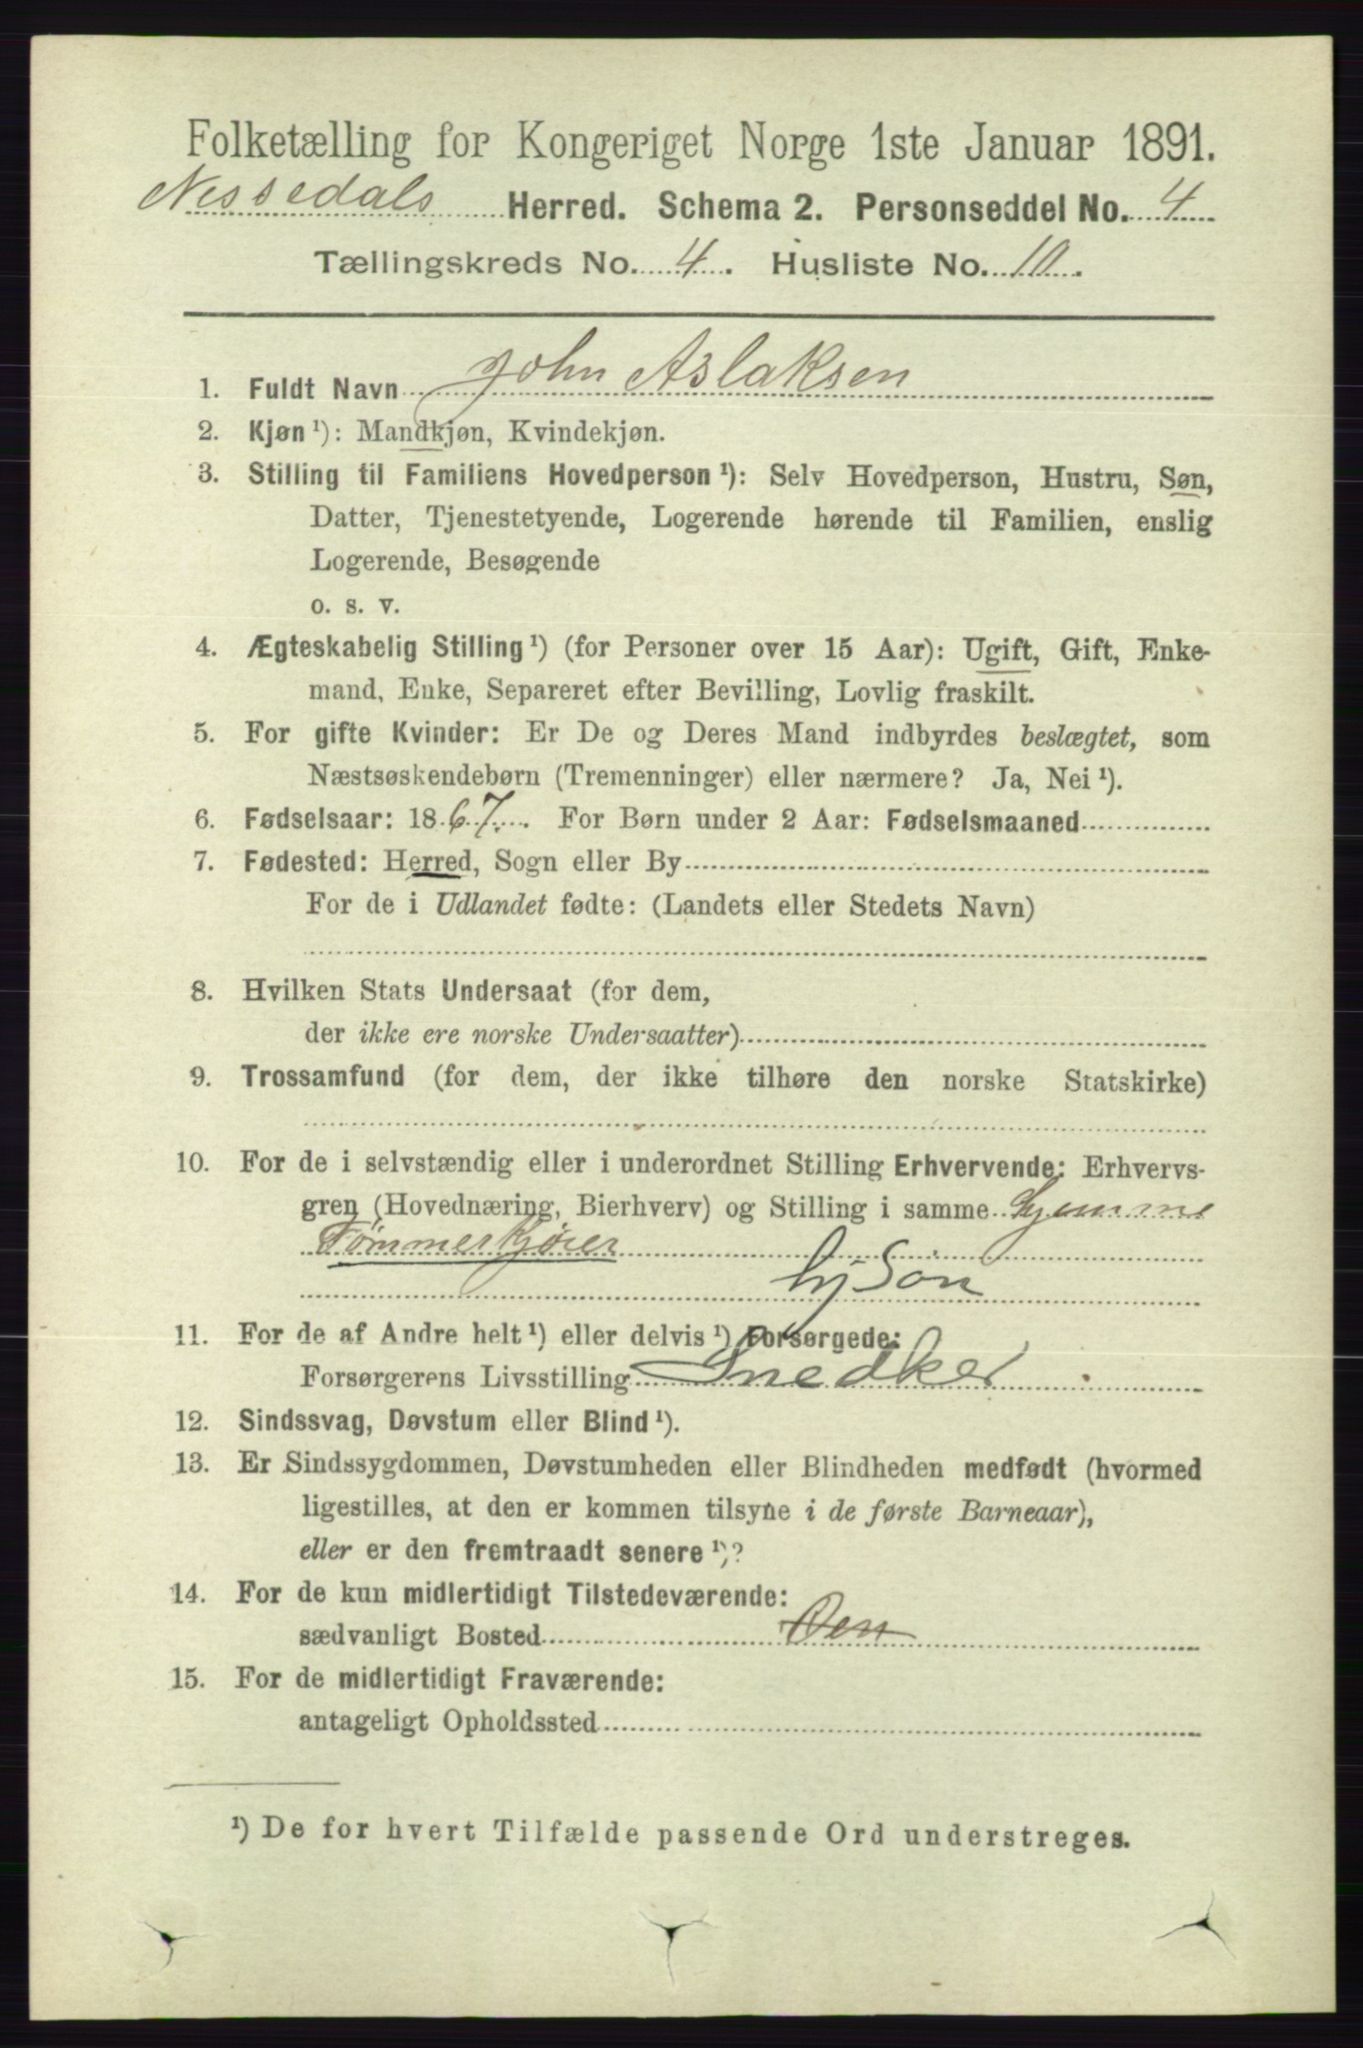 Folketælling for Kongeriget Norge 1ste Januar 1891.
Nissedals Herred. Schema 2. Personseddel No. 4
Tællingskreds No. 4. Husliste No. 10.
1. Fuldt Navn John Aslaksen
2. Kjøn ¹): Mandkjøn, Kvindekjøn.
3. Stilling til Familiens Hovedperson ¹): Selv Hovedperson, Hustru, Søn,
Datter, Tjenestetyende, Logerende hørende til Familien, enslig
Logerende, Besøgende
o. s. v.
4. Ægteskabelig Stilling ¹) (for Personer over 15 Aar): Ugift, Gift, Enke-
mand, Enke, Separeret efter Bevilling, Lovlig fraskilt.
5. For gifte Kvinder: Er De og Deres Mand indbyrdes beslægtet, som
Næstsøskendebørn (Tremenninger) eller nærmere? Ja, Nei ¹).
6. Fødselsaar: 1867. For Børn under 2 Aar: Fødselsmaaned
7. Fødested: Herred, Sogn eller By
For de i Udlandet fødte: (Landets eller Stedets Navn)
8. Hvilken Stats Undersaat (for dem,
der ikke ere norske Undersaatter)
9. Trossamfund (for dem, der ikke tilhøre den norske Statskirke)
10. For de i selvstændig eller i underordnet Stilling Erhvervende: Erhvervs-
gren (Hovednæring, Bierhverv) og Stilling i samme hjemme
Tømmerkjører
hj Søn
11. For de af Andre helt ¹) eller delvis ¹) Forsørgede:
Forsørgerens Livsstilling Snedker
12. Sindssvag, Døvstum eller Blind ¹).
13. Er Sindssygdommen, Døvstumheden eller Blindheden medfødt (hvormed
ligestilles, at den er kommen tilsyne i de første Barneaar),
eller er den fremtraadt senere ¹)?
14. For de kun midlertidigt Tilstedeværende:
sædvanligt Bosted
15. For de midlertidigt Fraværende:
antageligt Opholdssted
¹) De for hvert Tilfælde passende Ord understreges.